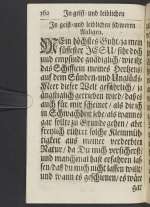 162 In geist- und leiblichen
In geist- und leiblichen schweren
Anligen.
MEin höchstes Guht, ja mein
süssester JESU, siehe doch
und empfinde gnädiglich, wie ist
das Schifflein meines Hertzens
auf dem Sünden- und Unglücks-
Meer dieser Welt gefährlich, ja
ängstiglich getrieben wird, daß es
auch für mir scheinet, als die ich
in Schwachheit lebe, als wann es
gar solte zu Grunde gehen, aber
freylich rühret solche Kleinmüh-
tigkeit aus meiner verderbten
Natur, da Du mich versicherst
und manchmal hast erfahren las-
sen, daß du mich nicht lassen wollest
und wann es geschienen, es wäre